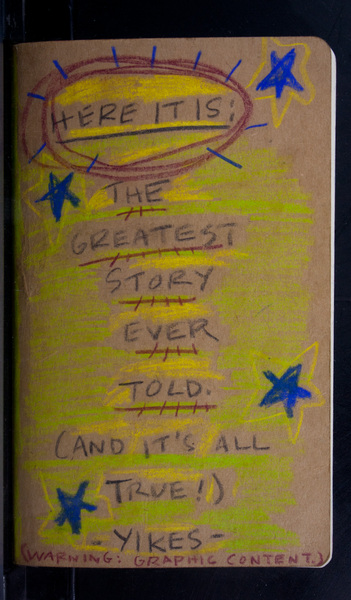 HERE IT IS:
THE
GREATEST
STORY
EVER
TOLD.
(AND IT'S ALL
TRUE!)
- YIKES -
(WARNING: GRAPHIC CONTENT.)